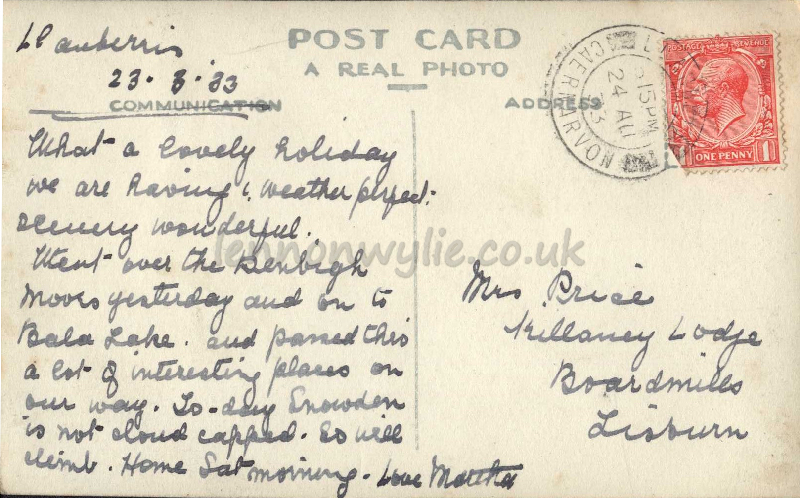 Llanberris
23.8.33
POST CARD
A REAL PHOTO
COMMUNICATION
ADDRESS
CAERNARVON
8 15 PM
24 AU
33
POSTAGE REVENUE
ONE PENNY 1
What a lovely holiday
we are having & weather perfect.
Scenery wonderful.
Went over the Denbigh
Moors yesterday and on to
Bala Lake. and passed thro
a lot of interesting places on
our way. To-day Snowden
is not cloud capped. So will
climb. Home Sat morning. Love Martha
Mrs Price
Killaney Lodge
Boardmills
Lisburn
lennonwylie.co.uk